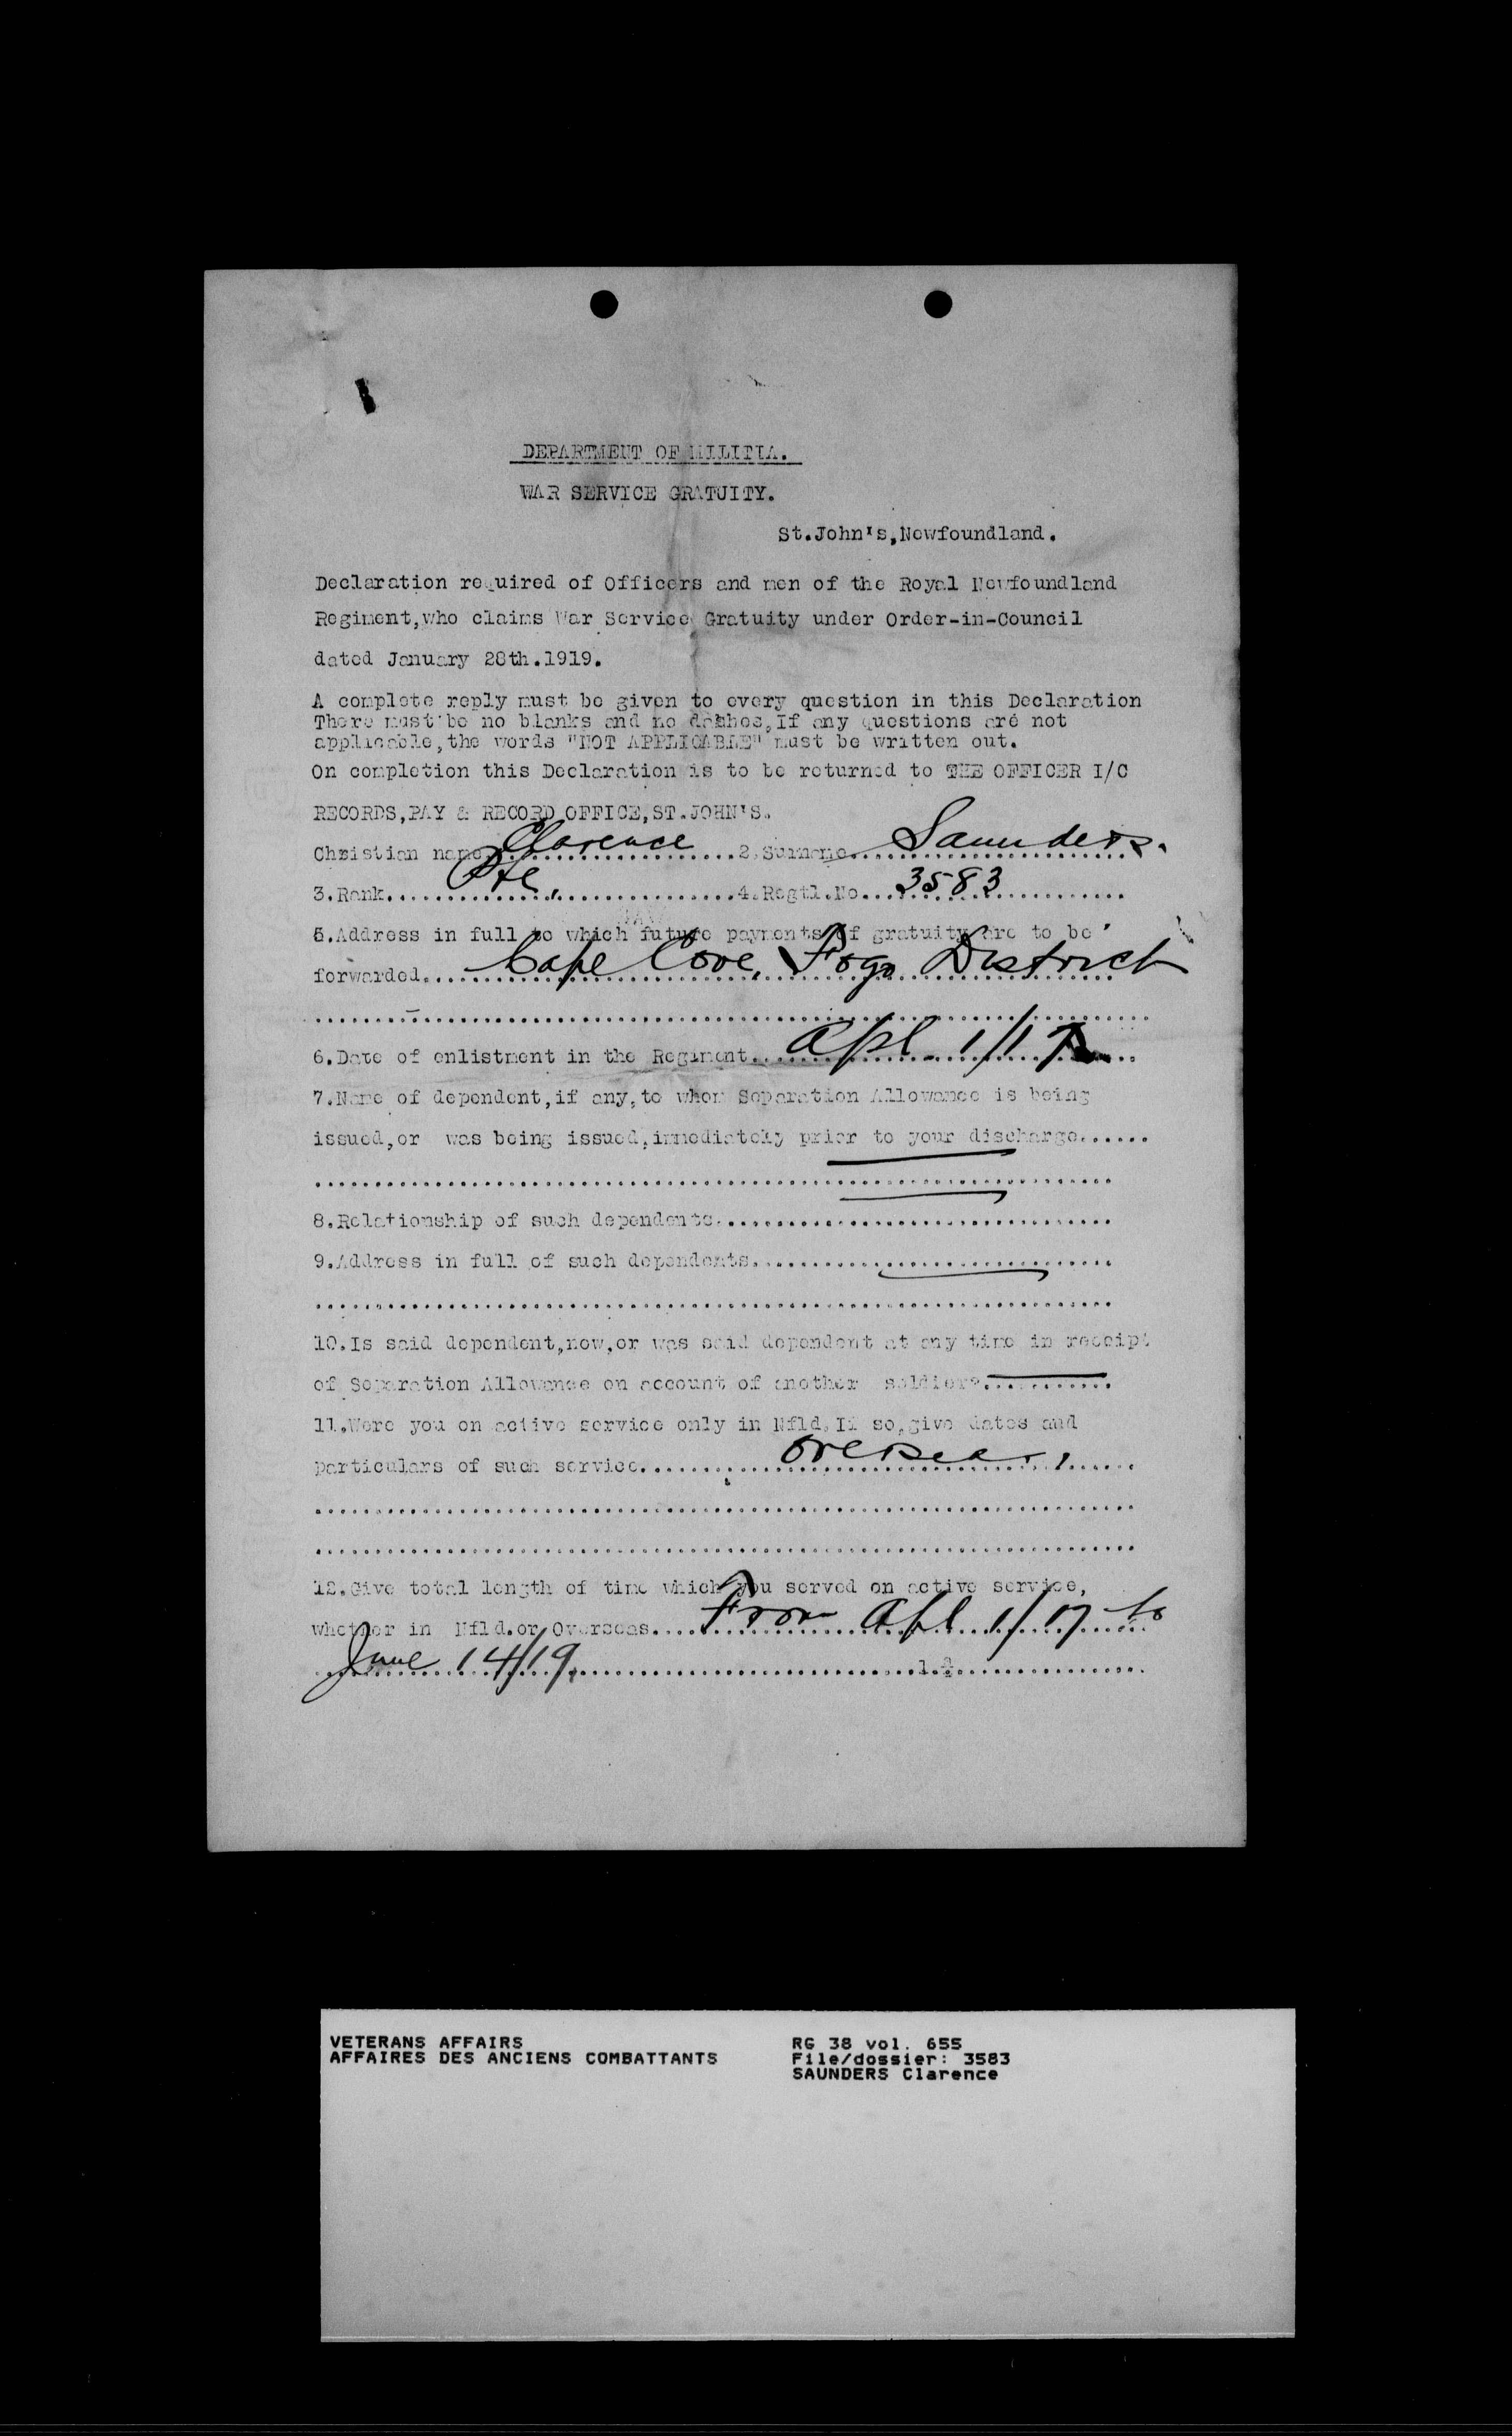 DEPARTMENT OF MILITIA.
WAR SERVICE GRATUITY.
St.John's,Newfoundland.
Declaration required of Officers and men of the Royal Newfoundland
Regiment,who claims War Service Gratuity under Order-in-Council
dated January 28th.1919.
A complete reply must be given to every question in this Declaration
There must be no blanks and no dashes,If any questions are not
applicable,the words "NOT APPLICABLE" must be written out.
On completion this Declaration is to be returned to THE OFFICER I/C
RECORDS,PAY & RECORD OFFICE,ST.JOHN'S.
Christian name Clarence 2.Surname Saunders.
3.Rank Pte, 4.Regtl.No 3583
5.Address in full to which future payments of gratuity are to be
forwarded Cape Cove, Fogo District
6.Date of enlistment in the Regiment Apl 1/17
7.Name of dependent,if any,to whom Separation Allowance is being
issued,or was being issued,immediately prior to your discharge......
8.Relationship of such dependents
9.Address in full of such dependents
10.Is said dependent,now,or was said dependent at any time in receipt
of Separation Allowance on account of another soldier?
11.Were you on active service only in Nfld.If so,give dates and
particulars of such service Oversea
12.Give total length of time which you served on active service,
whether in Nfld.or Overseas From Apl 1/17 to
June 14/19
VETERANS AFFAIRS RG 38 vol. 655
AFFAIRES DES ANCIENS COMBATTANTS File/dossier: 3583
SAUNDERS Clarence